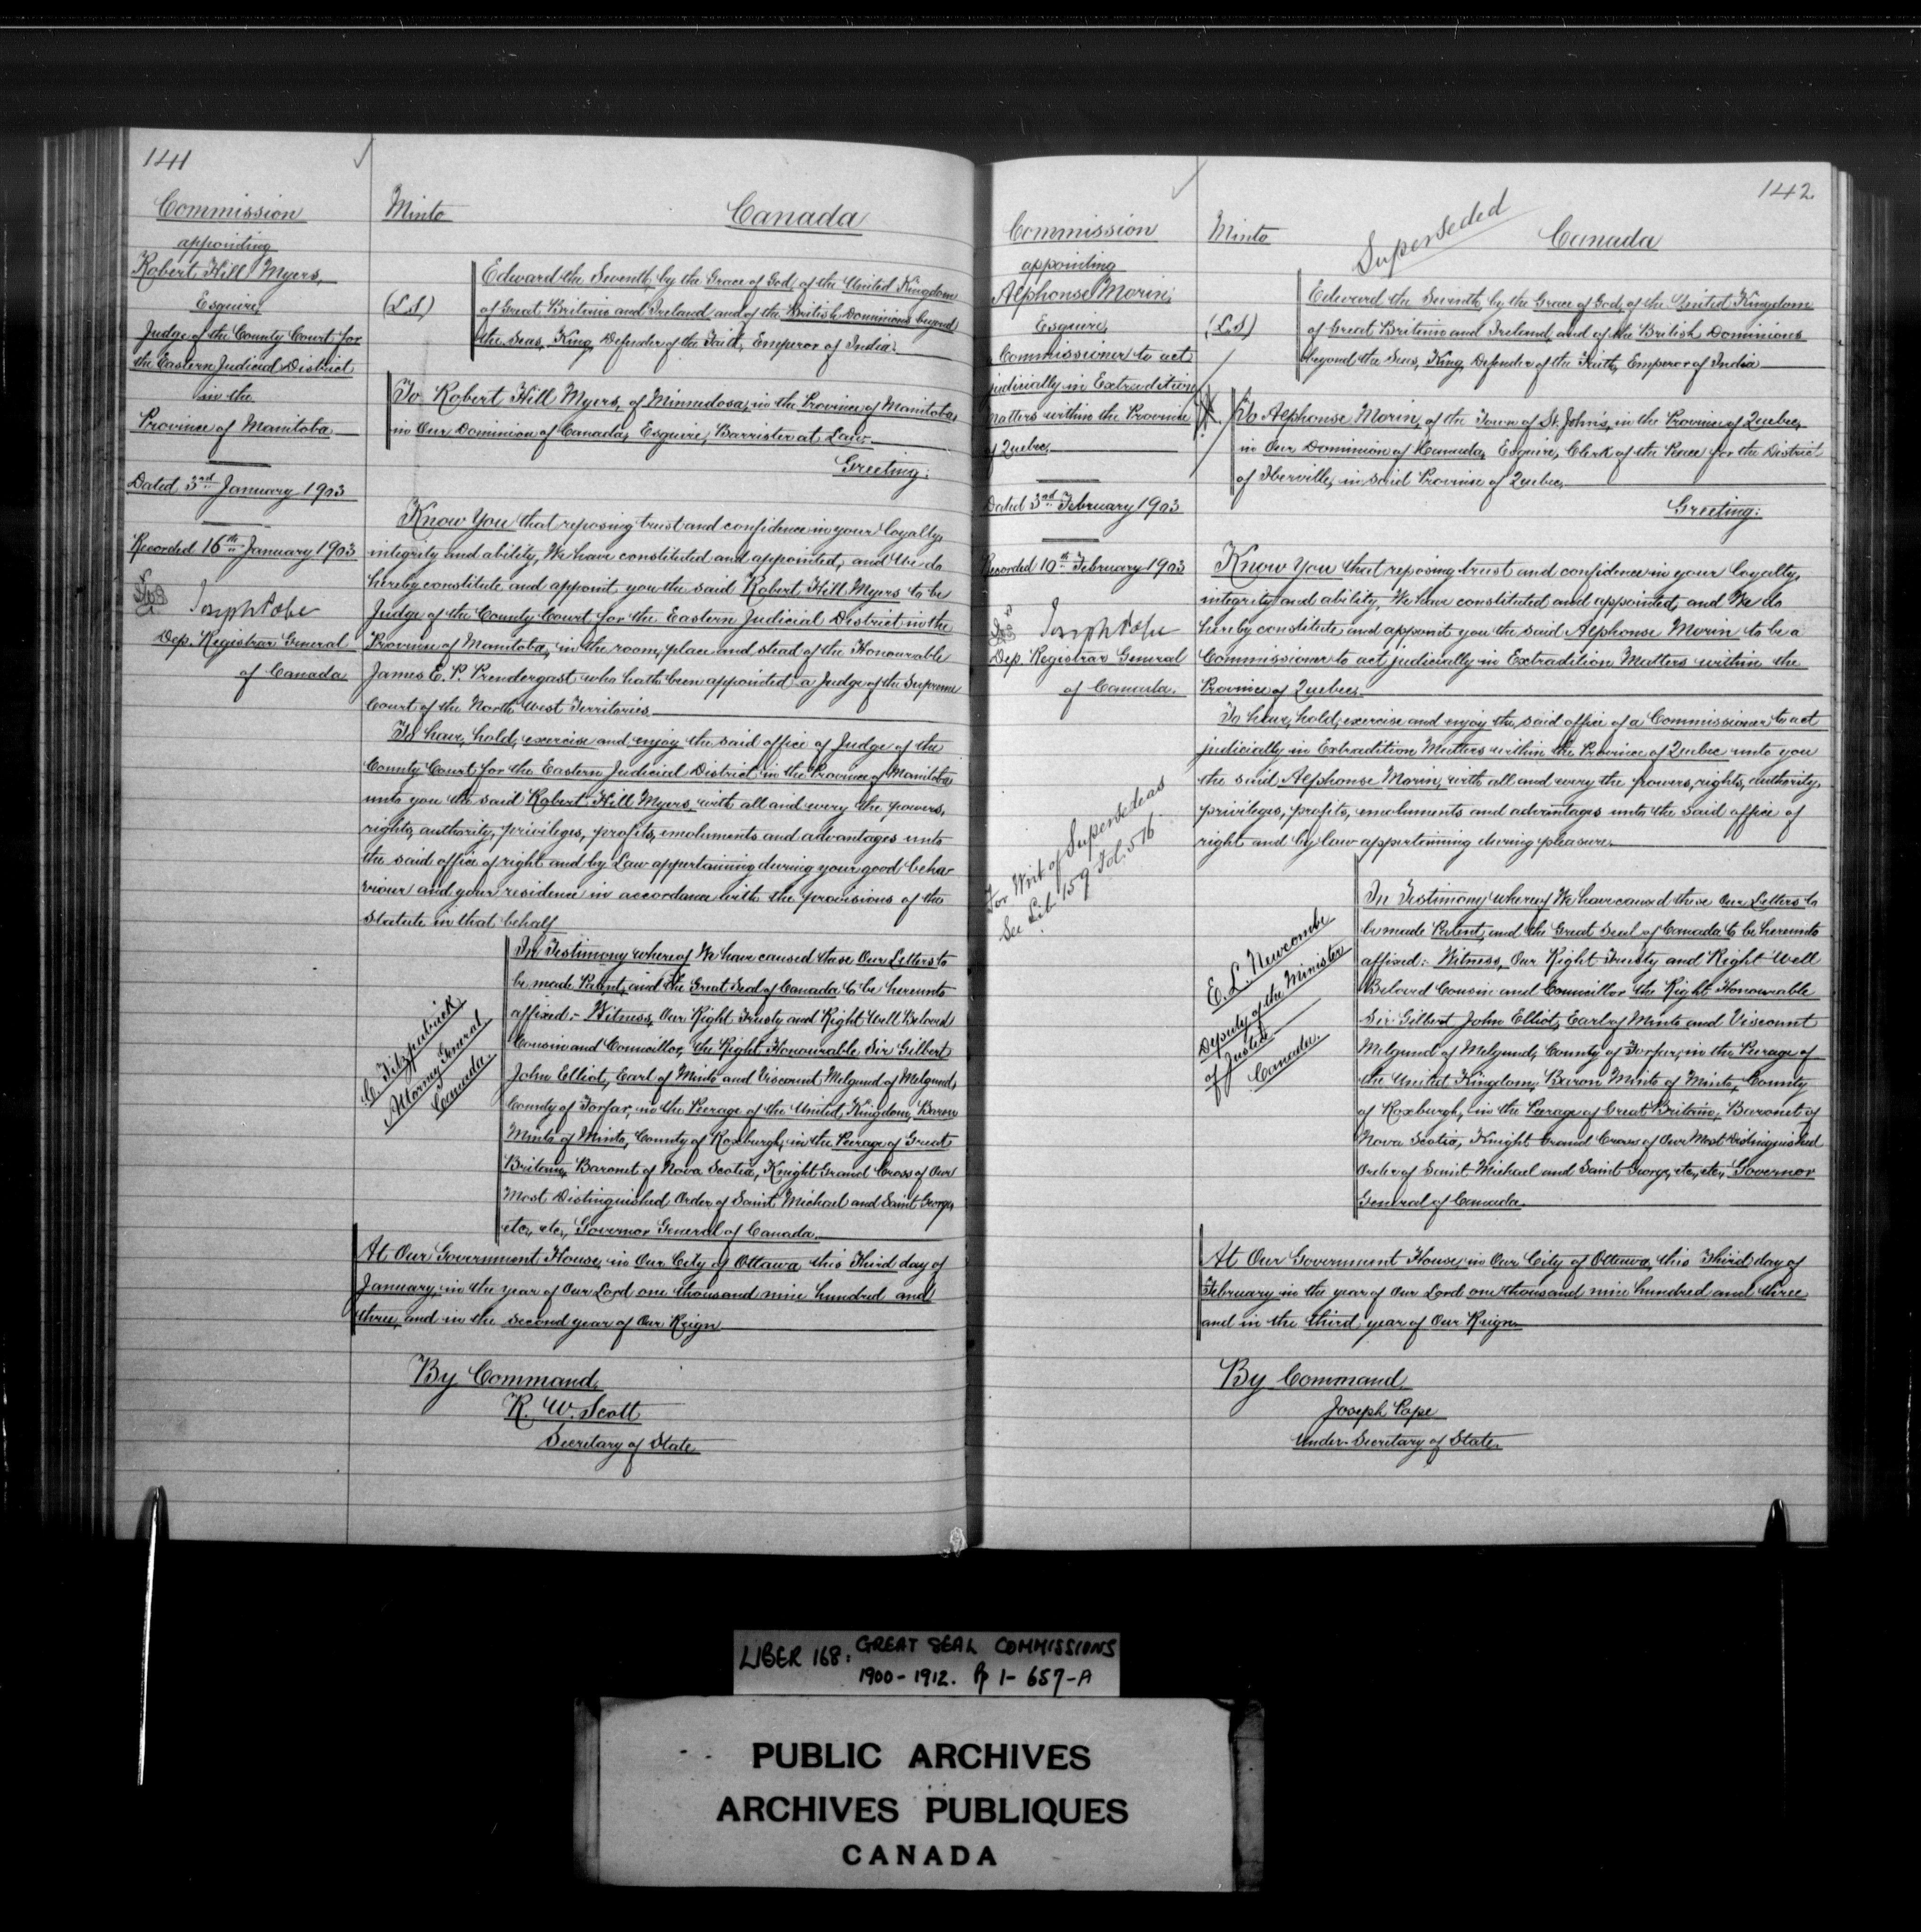 141
Commission
appointing
Robert Hill Myers,
Esquire,
Judge of the County Court for
the Eastern Judicial District
in the
Province of Manitoba
Dated 3rd January 1903
Recorded 16th January 1903
Joseph Pope
Dep. Registrar General
of Canada
Minto
Canada
(L.S)
Edward the Seventh, by the Grace of God, of the United Kingdom
of Great Britain and Ireland and of the British Dominions beyond
the Seas, King, Defender of the Faith, Emperor of India.
To Robert Hill Myers, of Minnedosa, in the Province of Manitoba,
in Our Dominion of Canada, Esquire, Barrister at Law
Greeting:
Know You that reposing trust and confidence in your loyalty,
integrity and ability, We have constituted and appointed, and We do
hereby constitute and appoint you the said Robert Hill Myers to be
Judge of the County Court for the Eastern Judicial District in the
Province of Manitoba, in the room, place and stead of the Honourable
James E. P. Prendergast who hath been appointed a Judge of the Supreme
Court of the North West Territories
To have, hold, exercise and enjoy the said office of Judge of the
County Court for the Eastern Judicial District in the Province of Manitoba
unto you the said Robert Hill Myers, with all and every the powers,
rights, authority, privileges, profits, emoluments and advantages unto
the said office of right and by Law appertaining during your good beha
viour and your residence in accordance with the provisions of the
Statute in that behalf
C. Fitzpatrick
Attorney General
Canada.
In Testimony whereof We have caused these Our Letters to
be made Patent, and the Great Seal of Canada to be hereunto
affixed:- Witness, Our Right Trusty and Right Well Beloved
Cousin and Councillor, the Right Honourable Sir Gilbert
John Elliot, Earl of Minto and Viscount Melgund of Melgund,
County of Forfar, in the Peerage of the United Kingdom, Baron
Minto of Minto, County of Roxburgh, in the Peerage of Great
Britain, Baronet of Nova Scotia, Knight Grand Cross of Our
Most Distinguished Order of Saint Michael and Saint George,
etc., etc., Governor General of Canada.
At Our Government House, in Our City of Ottawa, this Third day of
January, in the year of Our Lord one thousand nine hundred and
three, and in the second year of Our Reign
By Command,
R. W. Scott
Secretary of State
142
Commission
appointing
Alphonse Morin,
Esquire,
Commissioner to act
judicially in Extradition
Matters within the Province
of Quebec,
Dated 3rd February 1903
Recorded 10th February 1903
Joseph Pope
Dep. Registrar General
of Canada.
For Writ of Supersedeas
See Lib 159 Fol. 576
Minto
Superseded
Canada
(L.S)
Edward the Seventh, by the Grace of God, of the United Kingdom
of Great Britain and Ireland, and of the British Dominions
beyond the Seas, King, Defender of the Faith, Emperor of India
To Alphonse Morin, of the Town of St. John's, in the Province of Quebec,
in Our Dominion of Canada, Esquire, Clerk of the Peace for the District
of Iberville, in said Province of Quebec,
Greeting:
Know You that reposing trust and confidence in your loyalty,
integrity and ability, We have constituted and appointed, and We do
hereby constitute and appoint you the said Alphonse Morin to be a
Commissioner to act judicially in Extradition Matters within the
Province of Quebec.
To have, hold, exercise and enjoy the said office of a Commissioner to act
judicially in Extradition Matters within the Province of Quebec unto you
the said Alphonse Morin, with all and every the powers, rights, authority,
privileges, profits, emoluments and advantages unto the said office of
right and by law appertaining during pleasure.
E. L. Newcombe
Deputy of the Minister
of Justice
Canada.
In Testimony whereof We have caused these Our Letters to
be made Patent, and the Great Seal of Canada to be hereunto
affixed: Witness, Our Right Trusty and Right Well
Beloved Cousin and Councillor the Right Honourable
Sir Gilbert John Elliot, Earl of Minto and Viscount
Melgund of Melgund, County of Forfar, in the Peerage of
the United Kingdom, Baron Minto of Minto, County
of Roxburgh, in the Peerage of Great Britain, Baronet of
Nova Scotia, Knight Grand Cross of Our Most Distinguished
Order of Saint Michael and Saint George, etc., etc., Governor
General of Canada.
At Our Government House, in Our City of Ottawa, this Third day of
February in the year of Our Lord one thousand nine hundred and three
and in the third year of Our Reign.
By Command
Joseph Pope
Under-Secretary of State.
LIBER 168: GREAT SEAL COMMISSIONS
1900-1912. Pp 1-657-A
PUBLIC ARCHIVES
ARCHIVES PUBLIQUES
CANADA